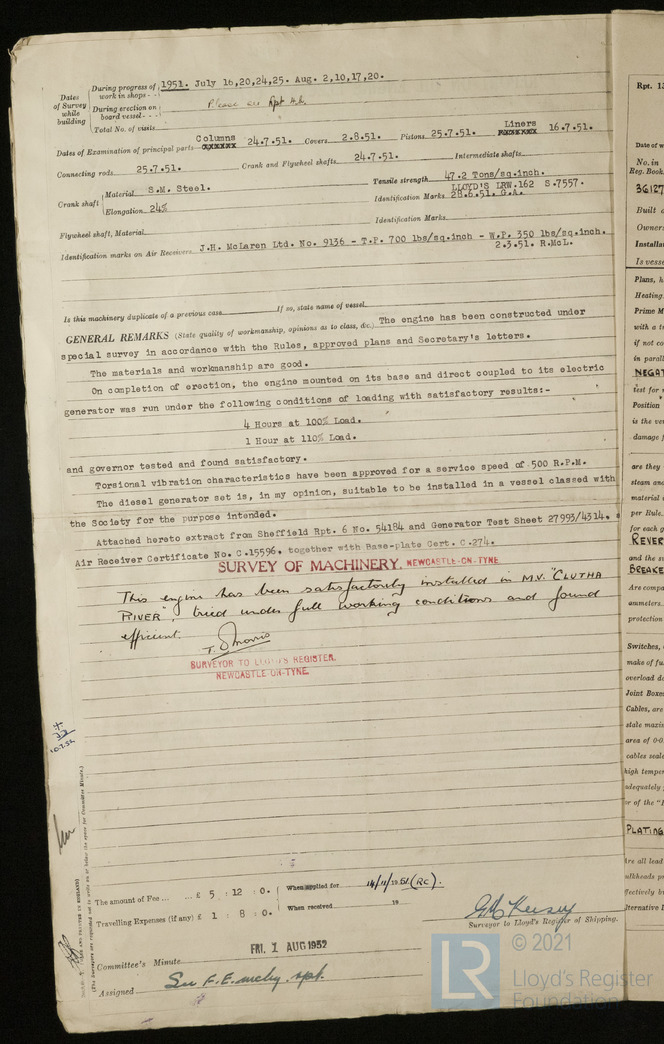 Dates of Survey while building
During progress of work in shops - - 1951. July 16,20,24,25. Aug. 2,10,17,20.
During erection on board vessel - - - Please see Rpt 4b.
Total No. of visits
Dates of Examination of principal parts Columns 24.7.51. Covers 2.8.51. Pistons 25.7.51. Liners 16.7.51.
Connecting rods 25.7.51. Crank and Flywheel shafts 24.7.51. Intermediate shafts
Crank shaft Material S.M. Steel. Tensile strength 47.2 Tons/sq.inch.
Elongation 24% Identification Marks LLOYD'S LRW.162 S.7557. 28.6.51. G.A.
Flywheel shaft, Material Identification Marks
Identification marks on Air Receivers J.H. McLaren Ltd. No. 9136 - T.P. 700 lbs/sq.inch - W.P. 350 lbs/sq.inch.
2.3.51. R.McL.
Is this machinery duplicate of a previous case If so, state name of vessel
GENERAL REMARKS (State quality of workmanship, opinions as to class, &c.) The engine has been constructed under
special survey in accordance with the Rules, approved plans and Secretary's letters.
The materials and workmanship are good.
On completion of erection, the engine mounted on its base and direct coupled to its electric
generator was run under the following conditions of loading with satisfactory results:-
4 Hours at 100% Load.
1 Hour at 110% Load.
and governor tested and found satisfactory.
Torsional vibration characteristics have been approved for a service speed of 500 R.P.M.
The diesel generator set is, in my opinion, suitable to be installed in a vessel classed with
the Society for the purpose intended.
Attached hereto extract from Sheffield Rpt. 6 No. 54184 and Generator Test Sheet 27993/4314,
Air Receiver Certificate No. C.15596, together with Base-plate Cert. C.274.
SURVEY OF MACHINERY. NEWCASTLE-ON-TYNE
This engine has been satisfactorily installed in M.V. "CLUTHA
RIVER", tried under full working conditions and found
efficient.
T. D. Morris
SURVEYOR TO LLOYD'S REGISTER.
NEWCASTLE-ON-TYNE.
The amount of Fee ... ... £ 5 : 12 : 0. When applied for 14/11/1951 (RC).
Travelling Expenses (if any) £ 1 : 8 : 0. When received 19
Surveyor to Lloyd's Register of Shipping.
Committee's Minute FRI. 1 AUG 1952
Assigned See F.E. mchy. rpt.
(The Surveyors are requested not to write on or below the space for Committee Minute.)
Rpt. 13
Date of
No. in
Reg. Book.
36127
Built
Owners
Is vesse
Plans,
Heating
Prime M
with a
if not co
in parall
NEGAT
test for
Position
is the ve
damage
are they
steam an
material
per Rule.
for each
REVER
and the
BREAKE
Are compa
ammeters
protection
Switches,
make of fu
overload d
Joint Boxe
Cables, are
state maxi
area of 0·0
cables seal
high temper
adequately
or of the "
PLATING
Are all lead
© 2021
Lloyd's Register
Foundation
LR